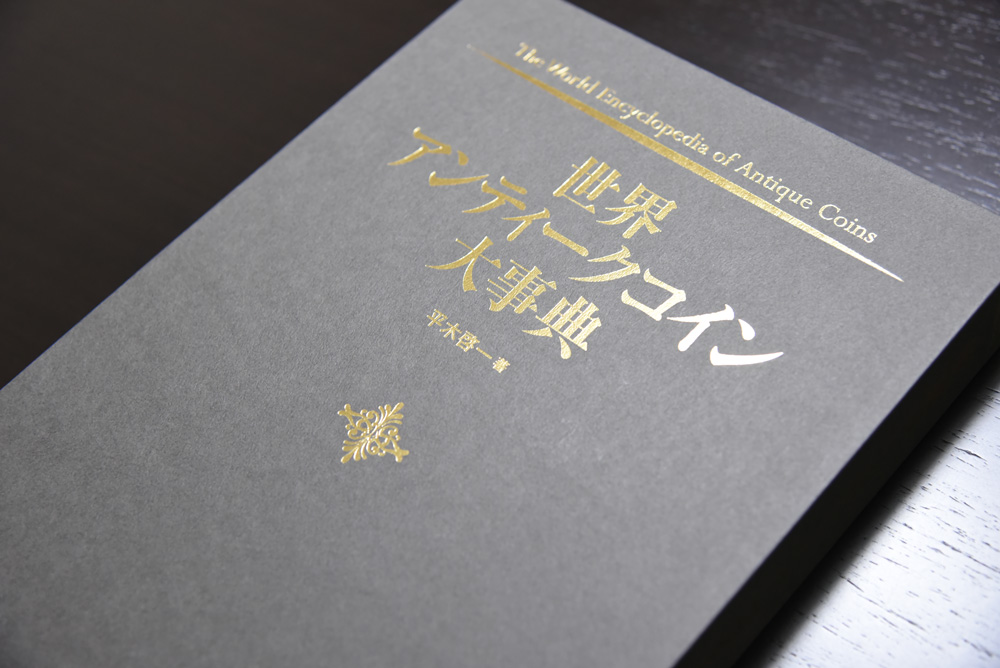 The World Encyclopedia of Antique Coins
世界
アンティークコイン
大事典
平木啓一 著